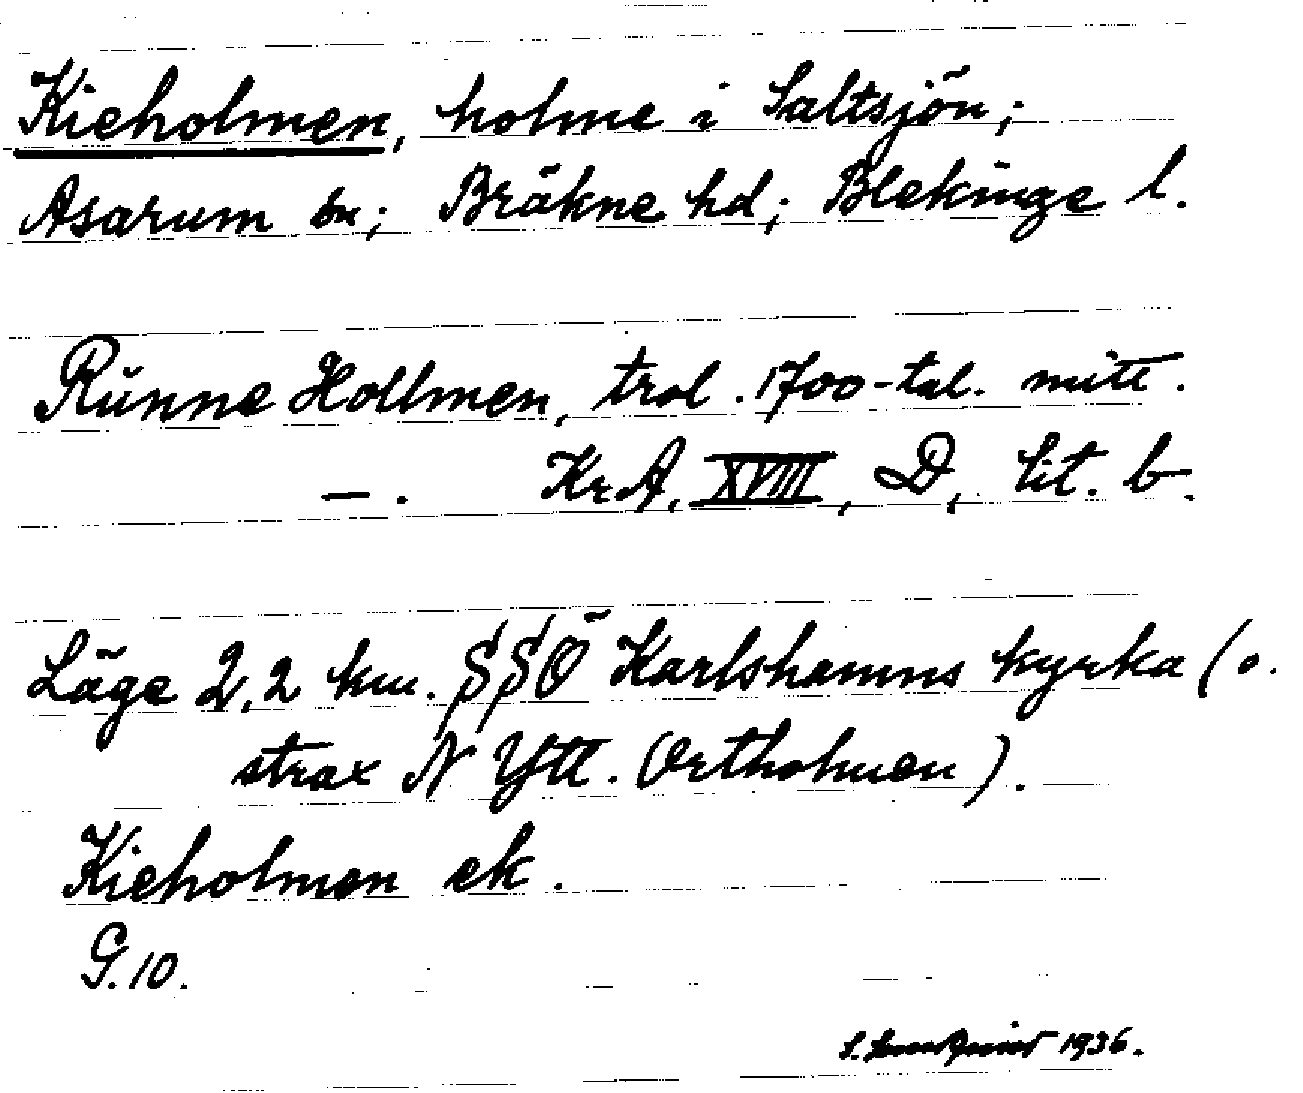 Kieholmen, holme i Saltsjön;
Asarum sn; Bräkne hd; Blekinge l.
Rünne Hollmen, trol. 1700-tal. mitt.
—. KrA, XVIII, D, lit. b.
Läge 2,2 km. SSÖ Karlshamns kyrka (o.
strax N Ytt. Ortholmen).
Kieholmen ek.
G.10.
1936.